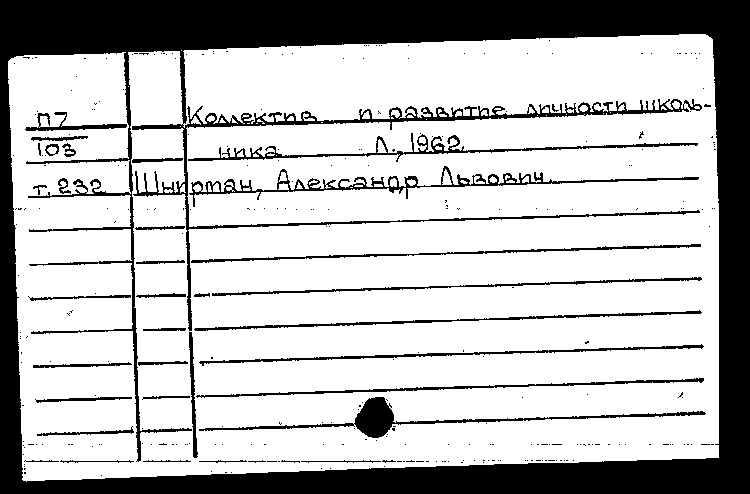 П7 Коллектив и развитие личности школь-
103 ника Л., 1962.
т. 232 Шнирман, Александр Львович.